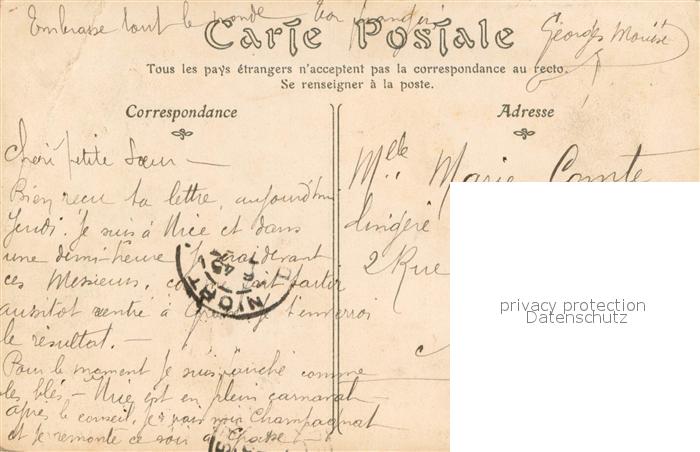 Embrasse tout le monde Ton
Georges
Carte Postale
Tous les pays étrangers n'acceptent pas la correspondance au recto.
Se renseigner à la poste.
Correspondance
Adresse
Chère petite Sœur —
Bien reçu ta lettre, aujourd'hui
Jeudi. Je suis à Nice et dans
une demi-heure devant
ces Messieurs, partir
aussitôt rentré à t'enverrai
le résultat. —
Pour le moment Je suis comme
les blés — Nice est en plein carnaval —
après le conseil, Je vais voir Champagnat
et je remonte ce soir à Grasse
Mlle Marie Comte
lingère
2 Rue
NIORT
privacy protection
Datenschutz